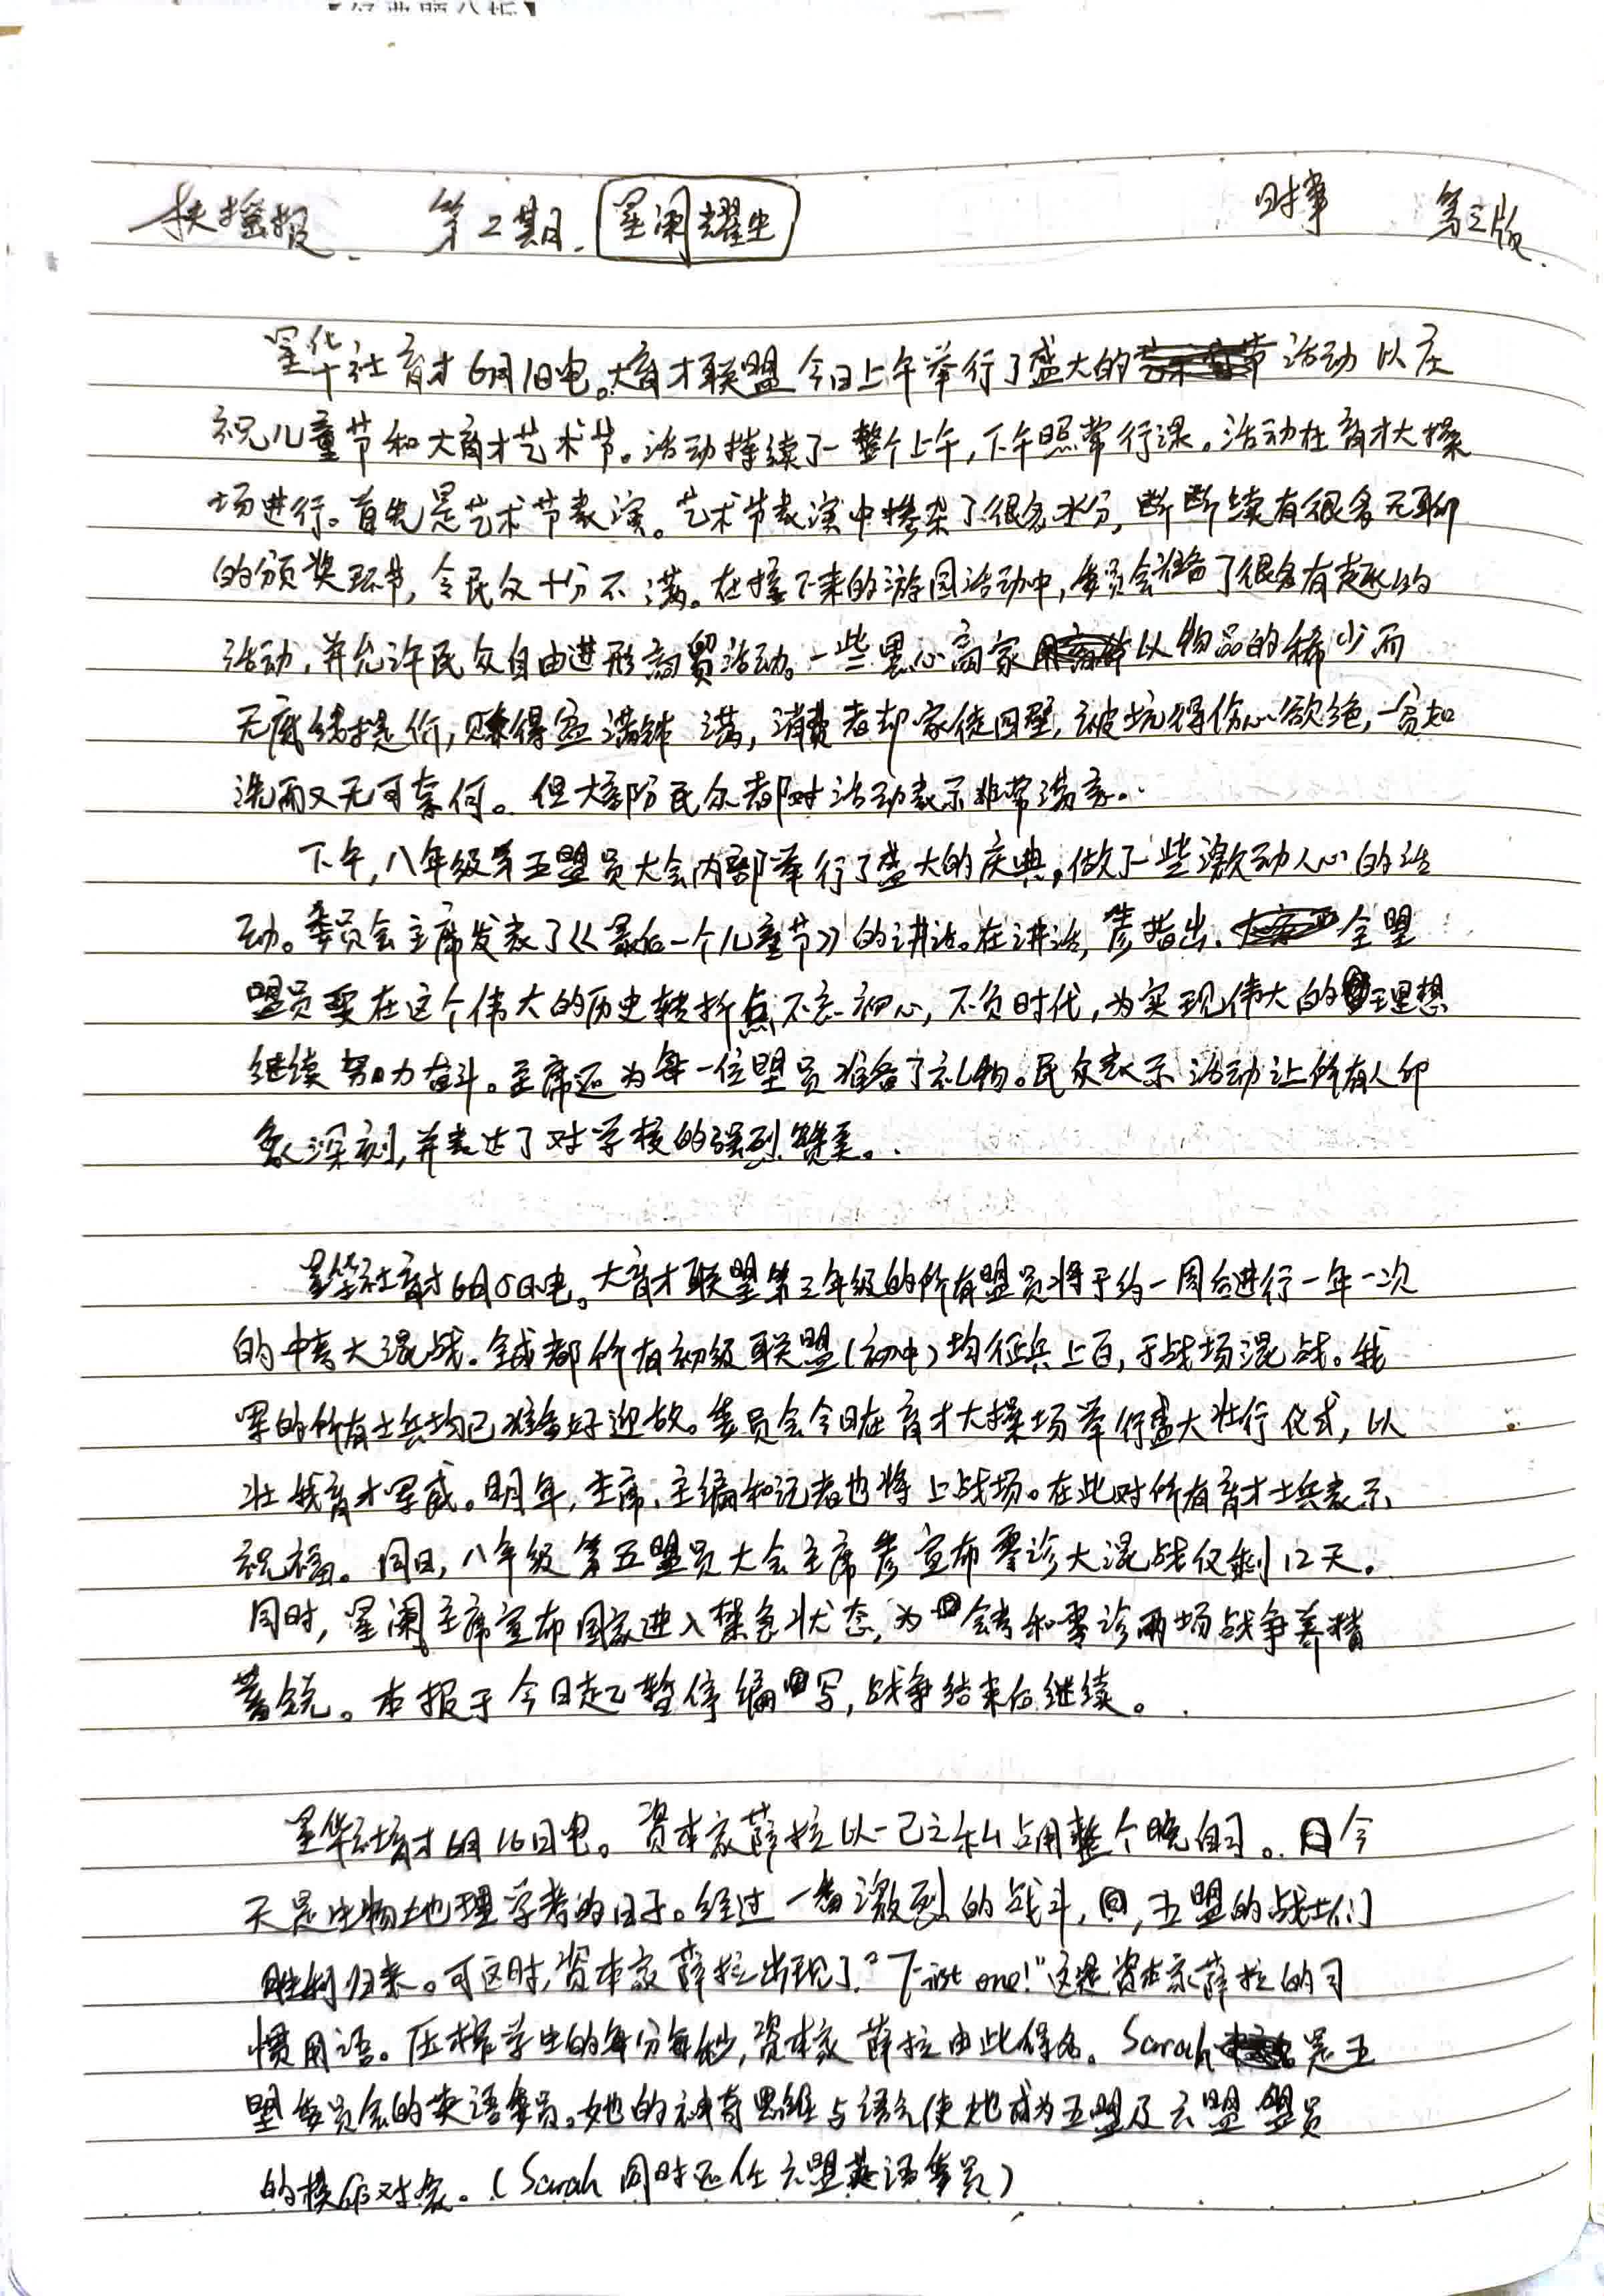 扶摇报. 第2期. 星阑耀生 时事 第三版.
星华社育才6月1日电。大育才联盟今日上午举行了盛大的 活动以庆
祝儿童节和大育才艺术节。活动持续了一整个上午,下午照常行课。活动在育才大操
场进行。首先是艺术节表演。艺术节表演中掺杂了很多水分,断断续有很多无聊
的颁奖环节,令民众十分不满。在接下来的游园活动中,委员会准备了很多有趣的
活动,并允许民众自由进形商贸活动。一些黑心商家 以物品的稀少而
无底线提价,赚得盆满钵满,消费者却家徒四壁,被坑得伤心欲绝,一贫如
洗而又无可奈何。但大部分民众都对活动表示非常满意。
下午,八年级第五盟员大会内部举行了盛大的庆典,做了一些激动人心的活
动。委员会主席发表了《最后一个儿童节》的讲话。在讲话,彦指出. 全盟
盟员要在这个伟大的历史转折点不忘初心,不负时代,为实现伟大的理想
继续努力奋斗。主席还为每一位盟员准备了礼物。民众表示活动让所有人印
象深刻,并表达了对学校的强烈赞美。
星华社育才6月5日电。大育才联盟第三年级的所有盟员将于约一周后进行一年一次
的中考大混战。全成都所有初级联盟(初中)均征兵上百,于战场混战。我
军的所有士兵均已准备好迎敌。委员会今日在育才大操场举行盛大壮行仪式,以
壮我育才军威。明年,主席、主编和记者也将上战场。在此对所有育才士兵表示
祝福。同日,八年级第五盟员大会主席彦宣布零诊大混战仅剩12天。
同时,星阑主席宣布国家进入紧急状态,为会考和零诊两场战争养精
蓄锐。本报于今日起暂停编写,战争结束后继续。
星华社育才6月16日电。资本家薛拉以一己之私占用整个晚自习。今
天是生物地理学考的日子。经过一番激烈的战斗,五盟的战士们
胜利归来。可这时,资本家薛拉出现了。"First one!"这是资本家薛拉的习
惯用语。压榨学生的每分每秒,资本家薛拉由此得名。Sarah 是五
盟委员会的英语委员。她的神奇思维与语气使她成为五盟及六盟盟员
的模仿对象。(Sarah同时还任六盟英语委员)